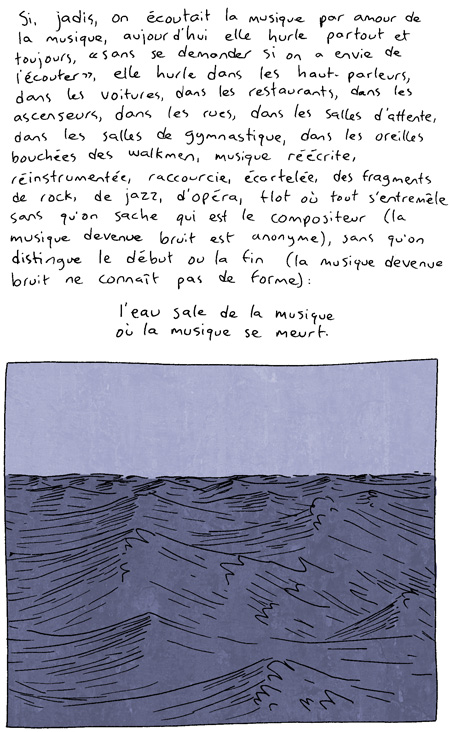 Si, jadis, on écoutait la musique par amour de
la musique, aujourd'hui elle hurle partout et
toujours, « sans se demander si on a envie de
l'écouter », elle hurle dans les haut-parleurs,
dans les voitures, dans les restaurants, dans les
ascenseurs, dans les rues, dans les salles d'attente,
dans les salles de gymnastique, dans les oreilles
bouchées des walkmen, musique réécrite,
réinstrumentée, raccourcie, écortelée, des fragments
de rock, de jazz, d'opéra, flot où tout s'entremêle
sans qu'on sache qui est le compositeur (la
musique devenue bruit est anonyme), sans qu'on
distingue le début ou la fin (la musique devenue
bruit ne connaît pas de forme) :
l'eau sale de la musique
où la musique se meurt.